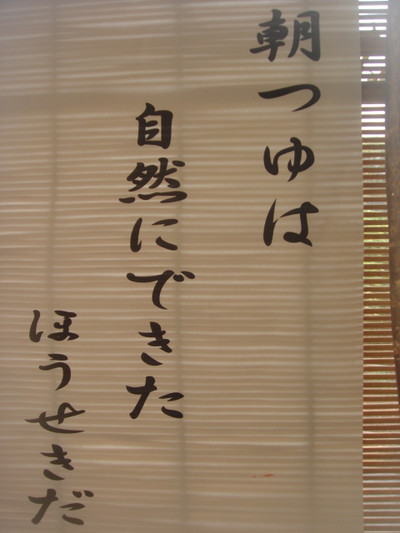 朝つゆは
自然にできた
ほうせきだ